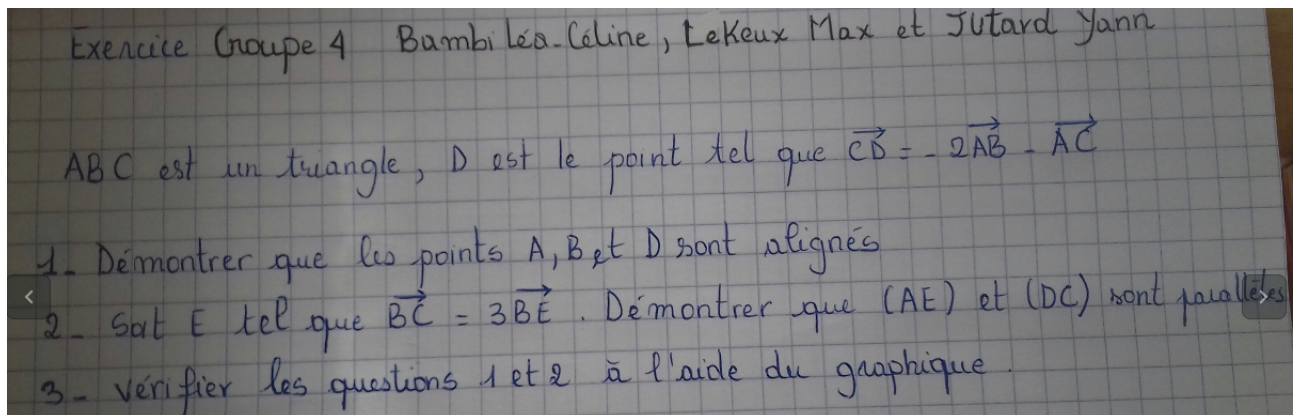 Exercice Groupe 4 Bambi Léa-Céline, LeKeux Max et Jutard Yann
ABC est un triangle, D est le point tel que CD⃗ = - 2AB⃗ - AC⃗
1- Démontrer que les points A, B et D sont alignés
2- Soit E tel que BC⃗ = 3BE⃗ . Démontrer que (AE) et (DC) sont parallèles
3- vérifier les questions 1 et 2 à l'aide du graphique.